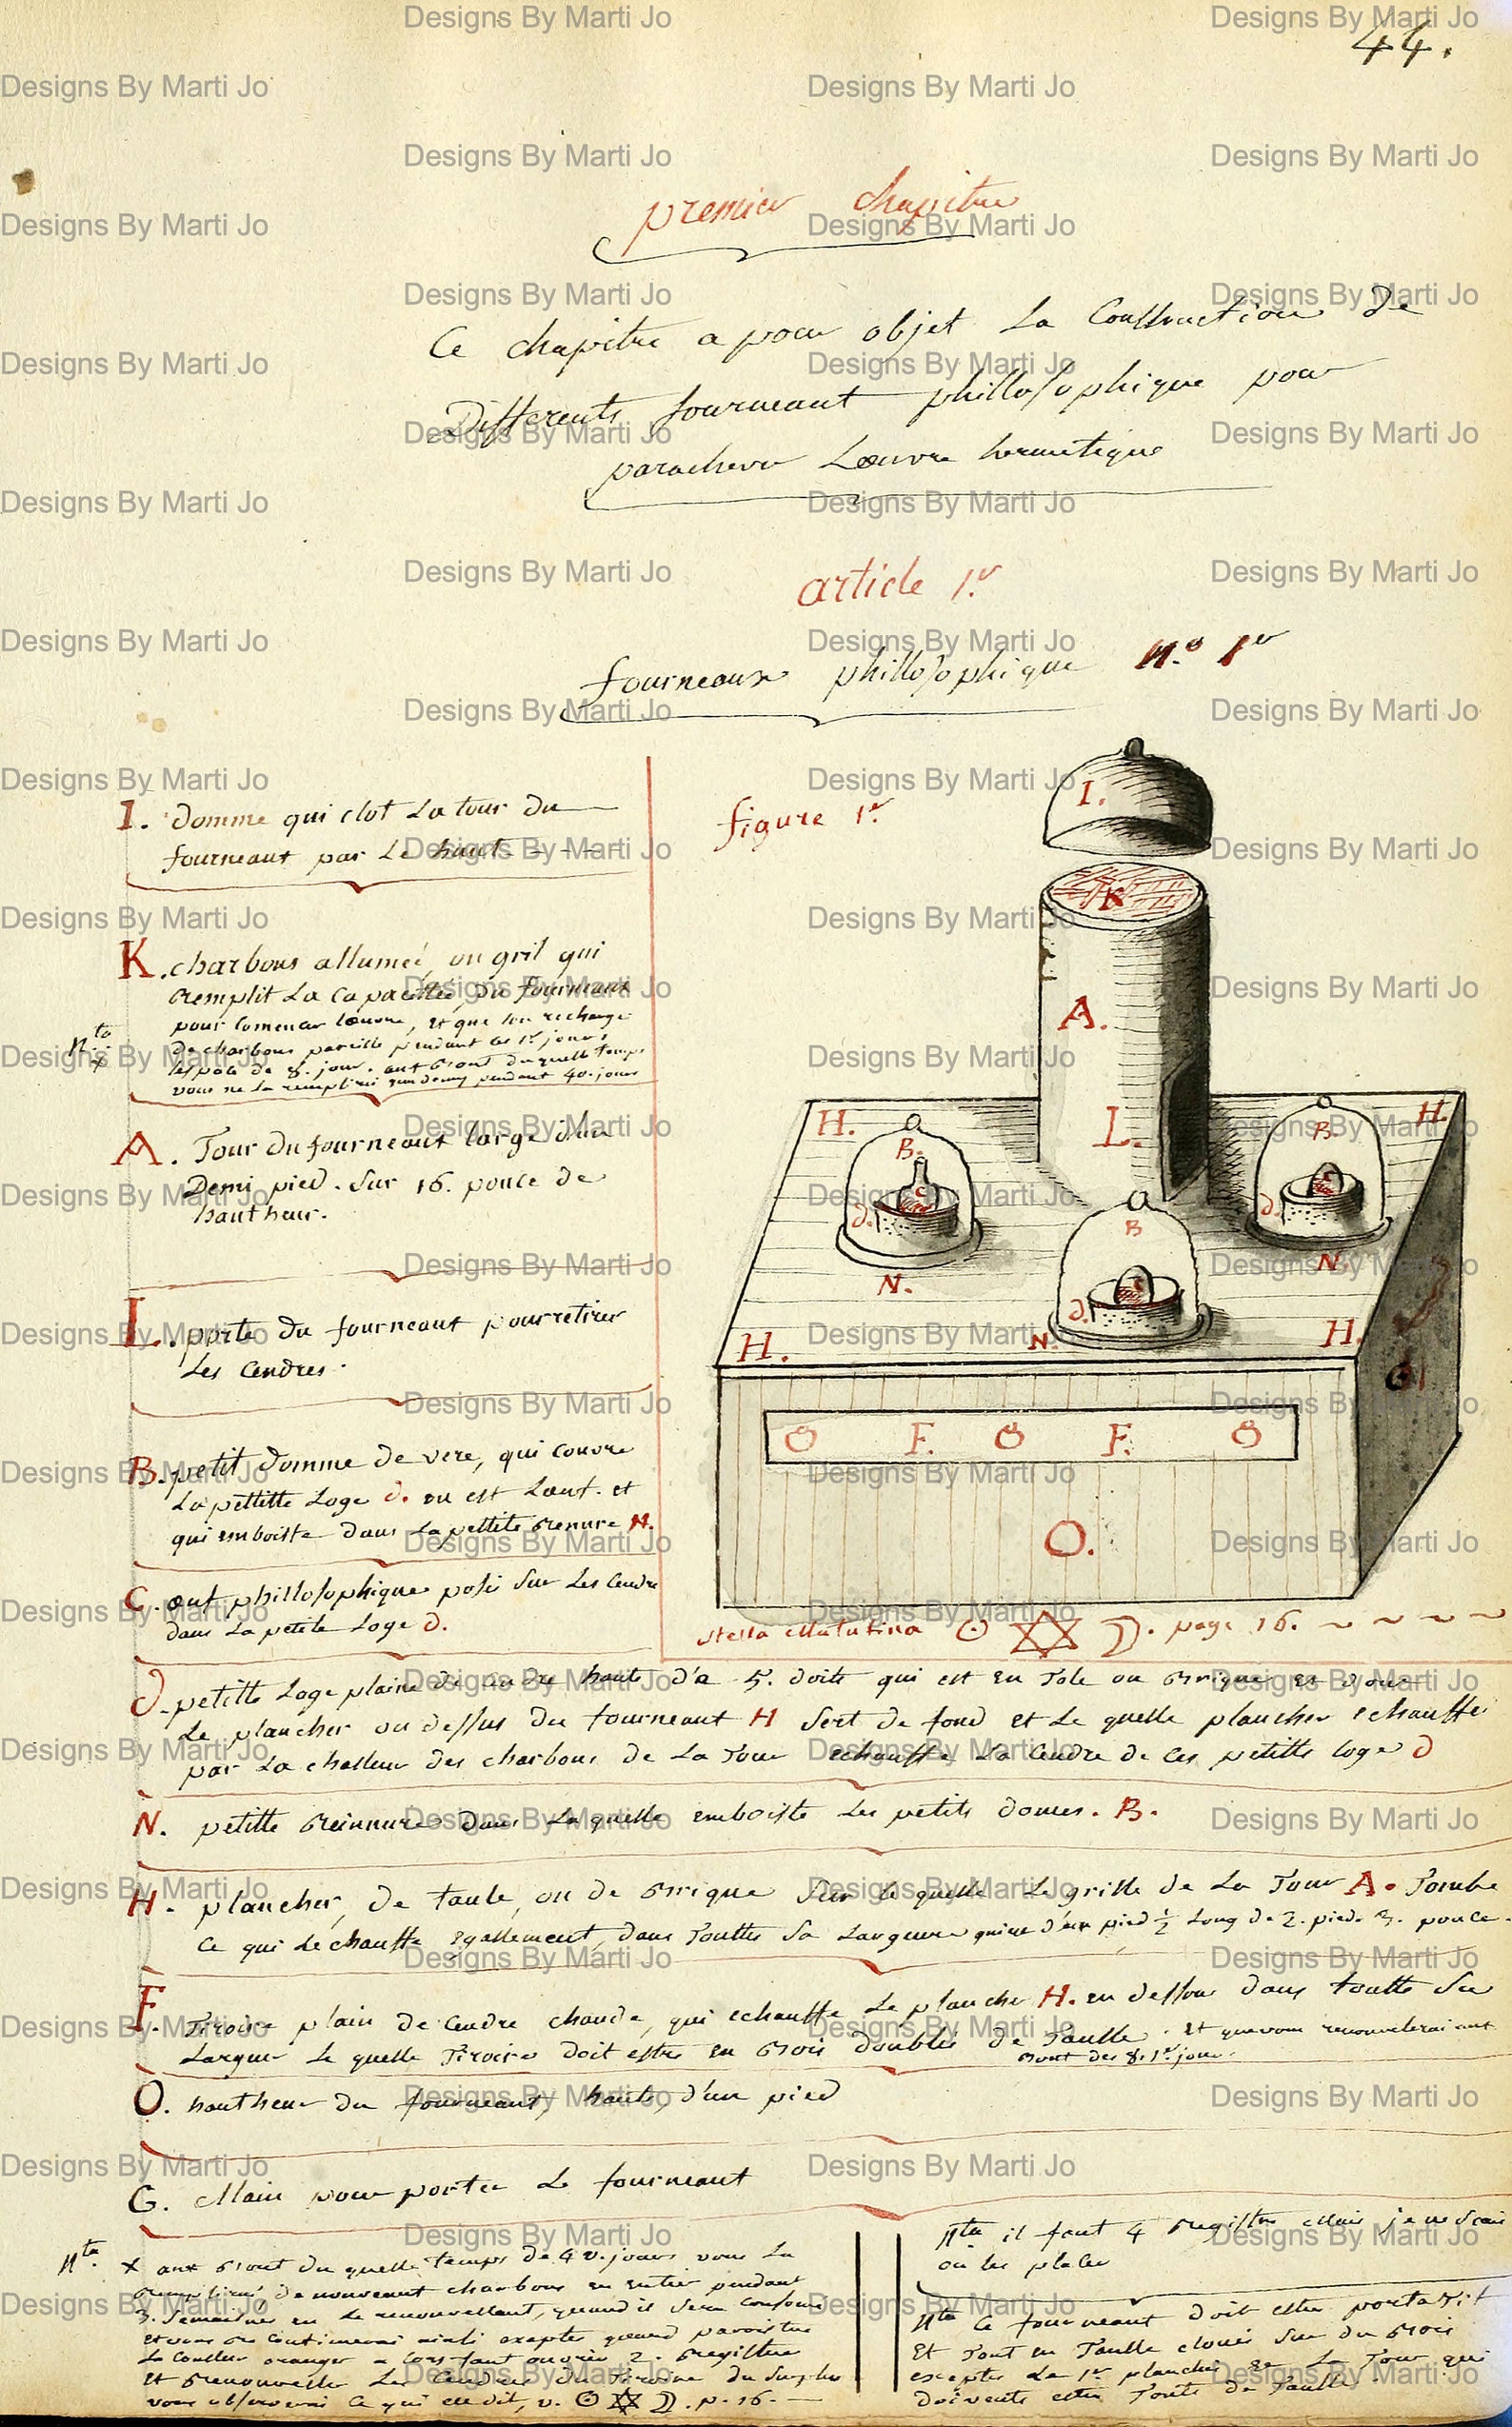 Designs By Marti Jo
44.
premier chapitre
Ce chapitre a pour objet La Construction De
Differents fourneaut phillosophique pour
parachever Lœuvre hermetique
article 1.er
fourneaux phillosophique N.o 1er
figure 1.re
I. Domme qui clot La tour du
fourneaut par Le haut - - - -
K. charbons allumeé, ou gril qui
remplit La Capacitée, du fourneaut
pour Comencer Lœuvre, et que lon recharge
De charbons pareille pendant les 1.rs jours
lespace de 8. jour. aut bout du quelle temps
vous ne La remplirai quademy pendant 40. jours
N.ta
x
A. Tour du fourneaut large d'un
Demi pied. Sur 16. pouce de
hautheur.
L. porte du fourneaut pour retirer
Les Cendres.
B. petit Domme de vere, qui couvre
La pettitte Loge d. ou est Lœuf. et
qui emboiste dans La pettite renure N.
C. œuf phillosophique posé Sur Les Cendre
dans La petite Loge d.
I.
K
A.
L.
H. H.
B. B.
d. C d. C
N. N.
B
d. C
N.
H. H.
G
O F. O F. O
O.
Stella Matutina ☉ ✡ ☽. page 16. ~ ~ ~ ~
d. petitte Loge plaine de Cendre haute d'a 5. doits qui est en Tole ou brique et dont
Le plancher ou dessus du fourneaut H Sert de fond et Le quelle plancher echauffé
par La challeur des charbons de La Tour echauffe La Cendre de Ces petitte loge d
N. petitte reinnure dans La quelle emboiste Les petits domes. B.
H. plancher, de taule, ou de brique Sur le quelle Le grille de La Tour A. Tombe
Ce qui Le chauffe Egallement, dans Toutte Sa Largeure d'un pied ½ Long de 2. pied. 3. pouce.
F. Tiroire plain de Cendre chaude, qui echauffe Le planche H. en dessou dans toutte Sa
Largeur Le quelle Tiroire doit estre en bois doublée de Taulle. Et que vous renouvelerai aut
bout des 8. 1.rs jour.
O. hautheur du fourneaut, haute, d'un pied
G. Main pour porter Le fourneaut
N.ta x aut bout du quelle temps de 40. jours vous La
remplirai, de nouveaut charbons en entier pendant
3. Semaines en Le renouvellant, quand il Sera Consomé
et vous Continuerai ainsi excepter quand paroistra
La Coulleur oranger a Lors faut ouvrir 2. registre
et renouveller Les Cendres du Tiroire du
vous observerai Ce qui est dit, v. ☉ ✡ ☽. p. 16. —
N.ta il faut 4 registre Mais je ne Scais
où les placer
N.ta Ce fourneaut doit estre portatif
Et Tout en Taulle cloués Sur du bois
excepter Le 1.er plancher et La Tour qui
doivent estre Toute de Taulle.